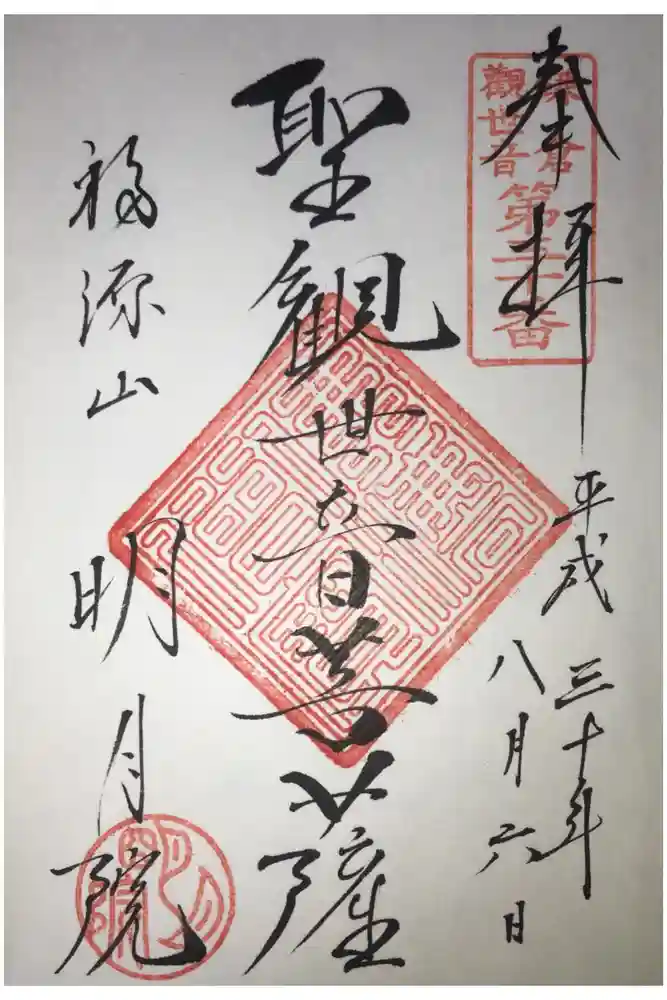 奉拝
鎌倉
觀世音
第三十番
平成三十年
八月六日
聖観世音菩薩
福源山
明月院